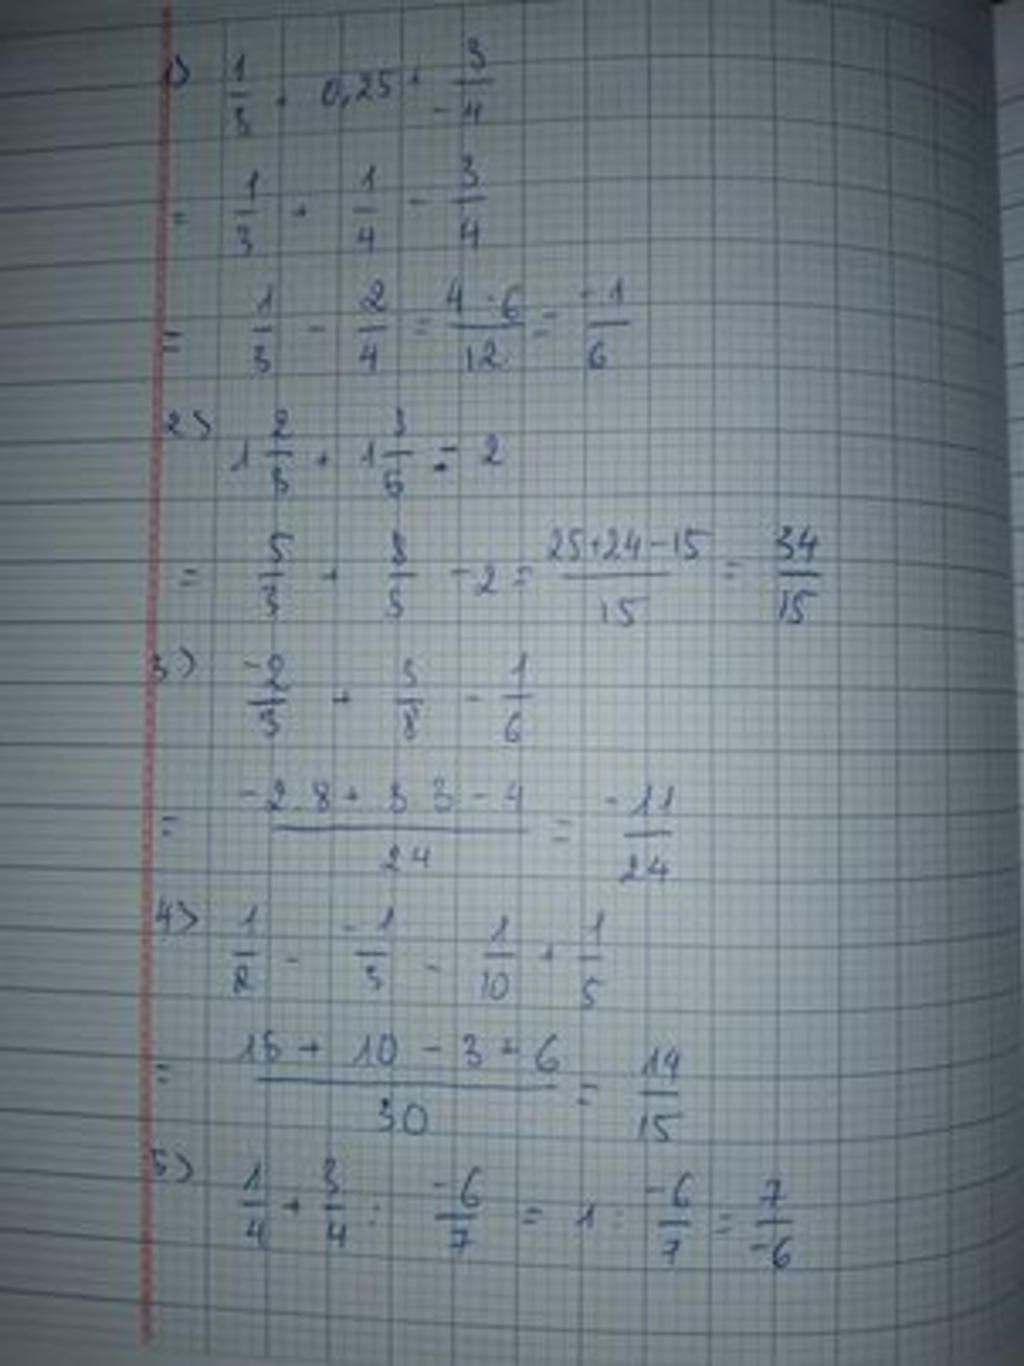 1) 1/3 + 0,25 + 3/-4
= 1/3 + 1/4 - 3/4
= 1/3 - 2/4 = 4-6/12 = -1/6
2) 1 2/3 + 1 3/5 - 2
= 5/3 + 8/5 - 2 = 25+24-15/15 = 34/15
3) -2/3 + 3/8 - 1/6
= -2.8 + 3 3 - 4/24 = -11/24
4) 1/2 - -1/3 - 1/10 + 1/5
= 15 + 10 - 3 + 6/30 = 14/15
5) 1/4 + 3/4 : -6/7 = 1 : -6/7 = 7/-6